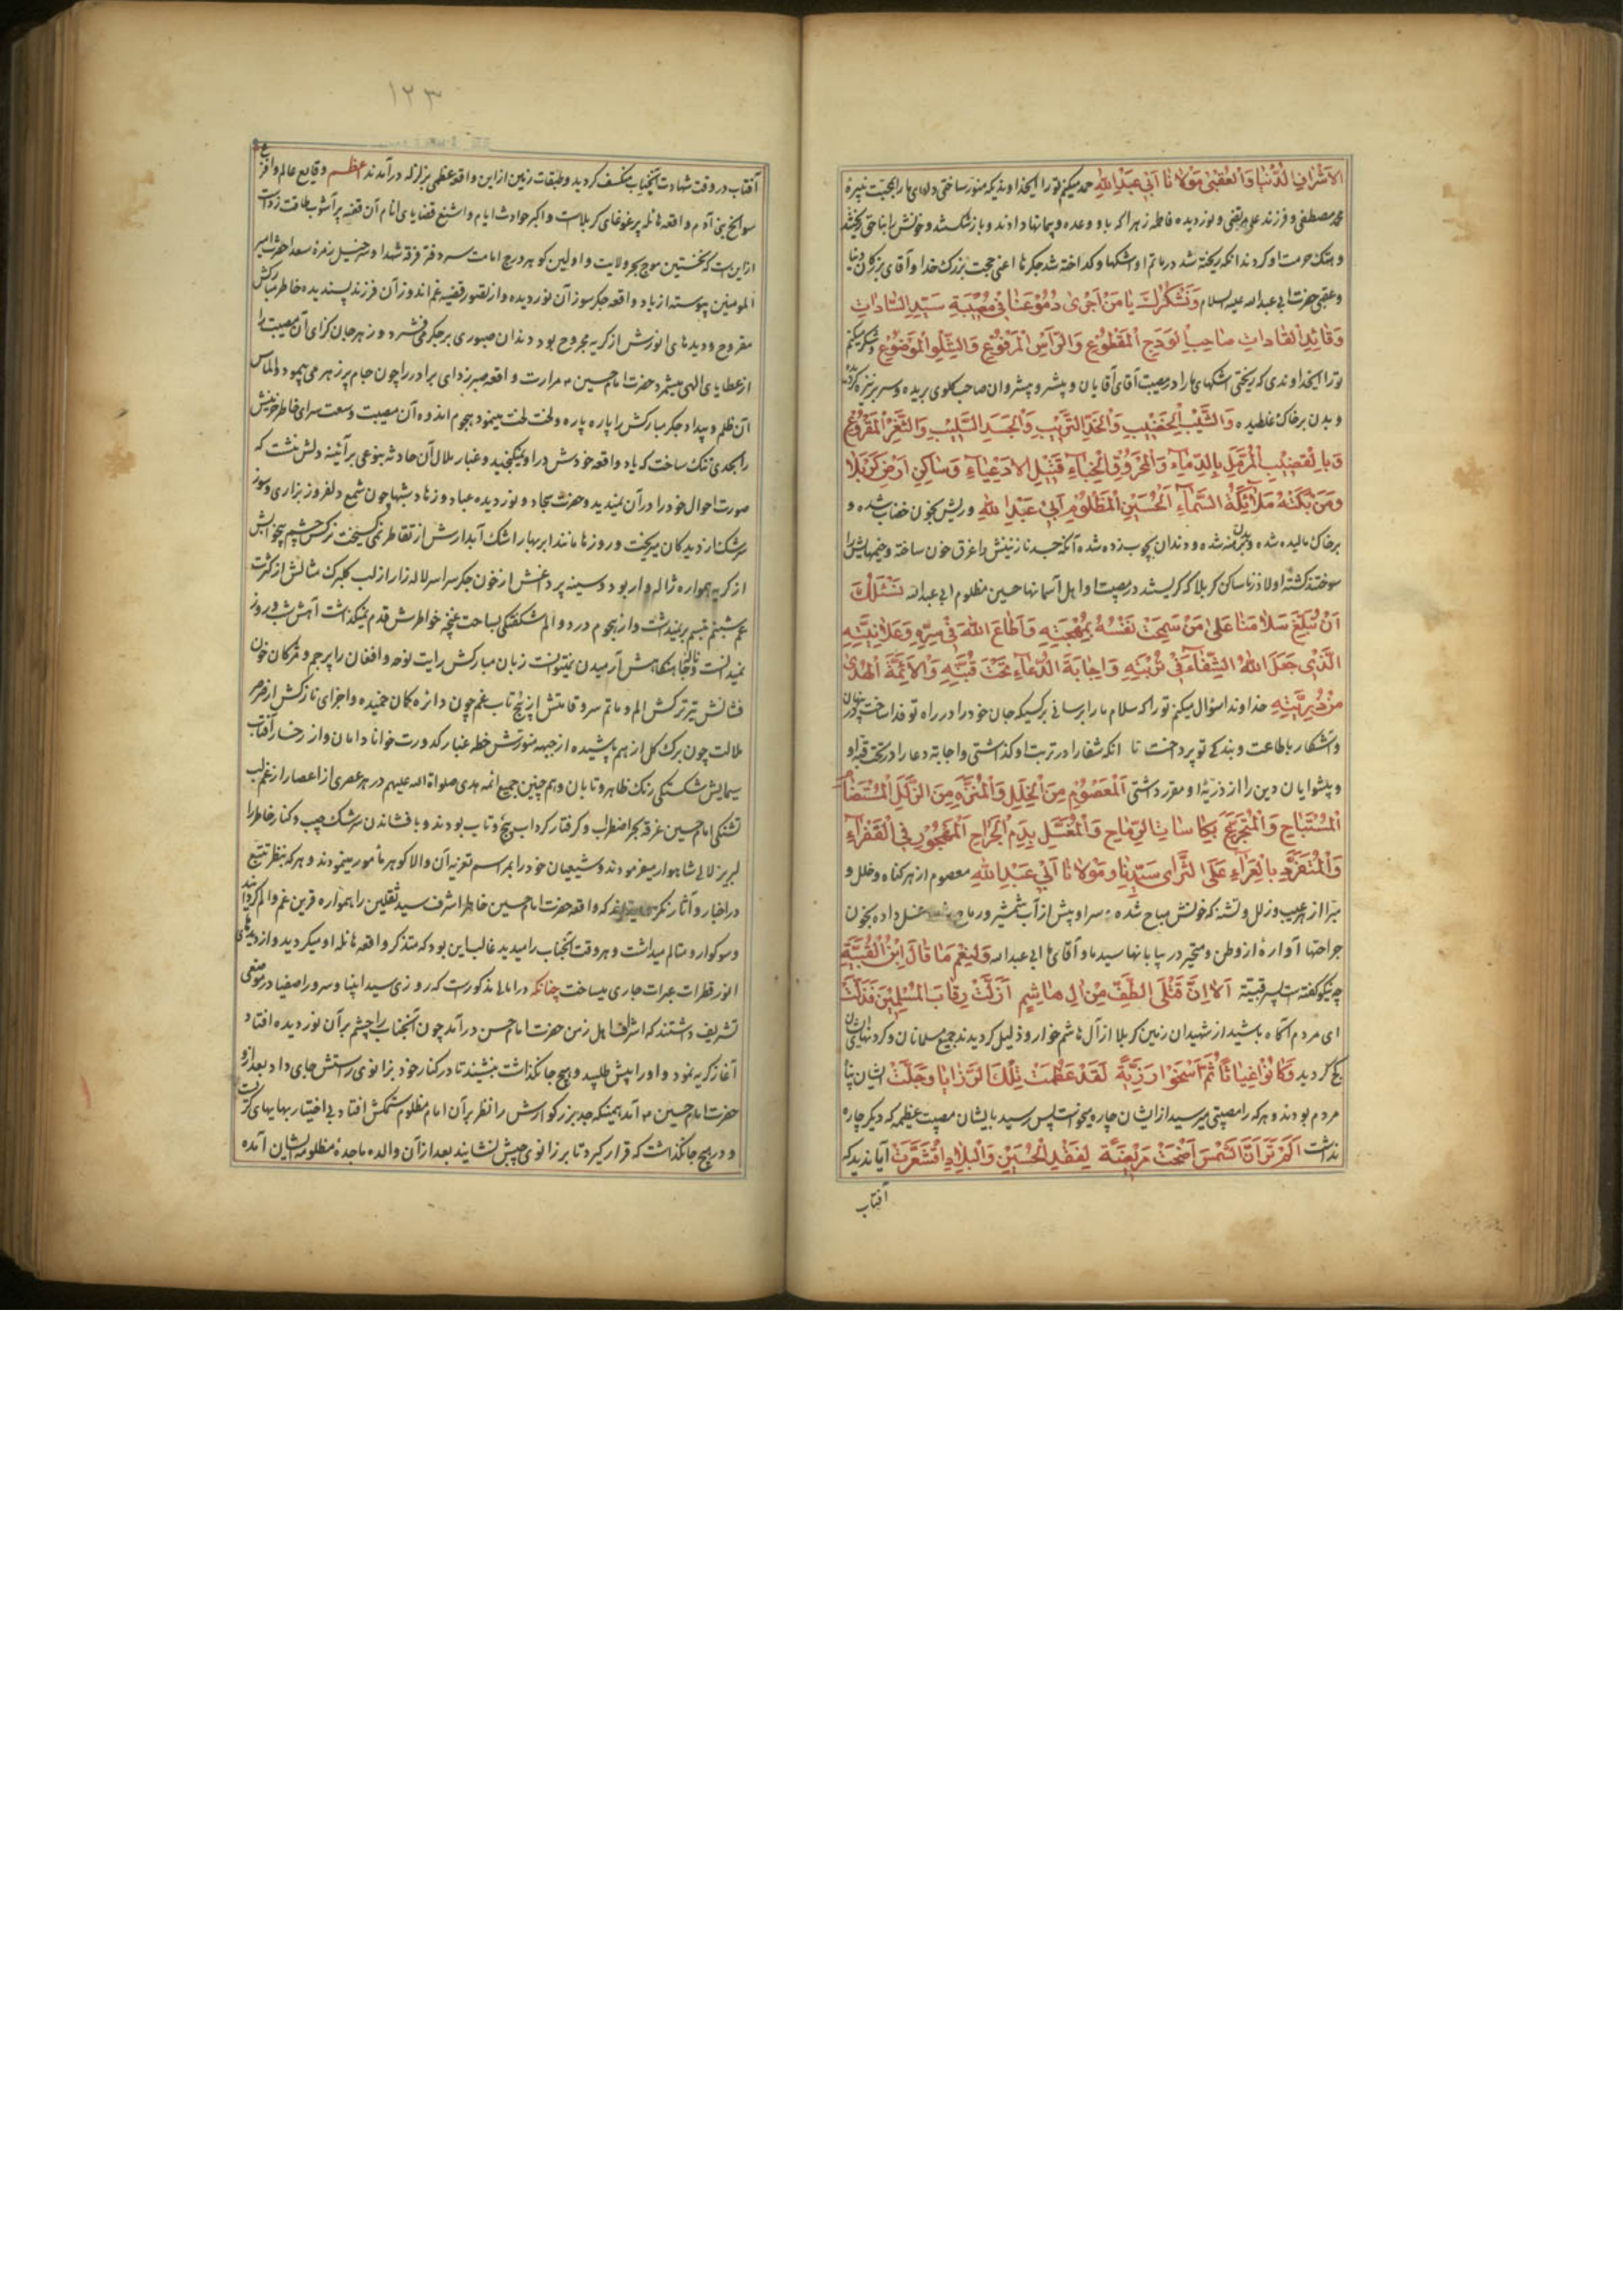 الاشراف للدنیا والعقبی مولانا ابی عبد الله حمد میکنم تو را ایخداوندیکه منور ساختی دلهای ما را بمحبت نبیرهٔ
محمد مصطفی و فرزند علی مرتضی و نور دیده فاطمه زهرا که با او وعده و پیمانها دادند و باز شکستند و خونش را بناحق ریختند
و هتک حرمت او کردند انکه ریخته شد در ماتم او اشکها و کداخته شد جکرها اعنی حجت بزرک خدا و آقای بزرکان دنیا
و عقبی حضرت ابی عبد الله علیه السلام وَنَشْکُرُكَ یَا مَنْ اَجْرٰی دُمُوْعَنَا فِی مُصِیْبَةِ سَیِّدِ السَّادَاتِ
وَقَائِدِ الْقَادَاتِ صَاحِبِ الْوَدَجِ الْمَقْطُوْعِ وَالرَّأْسِ الْمَرْفُوْعِ وَالشِّلْوِ الْمَوْضُوْعِ و شکر میکنم
تو را ایخداوندی که ریختی اشکهای ما را در مصیبت آقای آقایان و پیشرو پیشروان صاحب کلوی بریده و سر بر نیزه کرده
و بدن بر خاک غلطیده وَالشَّیْبِ الْخَضِیْبِ وَالْخَدِّ التَّرِیْبِ وَالْجَسَدِ السَّلِیْبِ وَالثَّغْرِ الْمَقْرُوْعِ
بِالْقَضِیْبِ الْمُرَمَّلِ بِالدِّمَاءِ وَالْمَحْرُوْقِ الْخِبَاءِ قَتِیْلِ الْاَدْعِیَاءِ وَسَاکِنِ اَرْضِ کَرْبَلَا
وَمَنْ بَکَتْهُ مَلَائِکَةُ السَّمَآءِ اَلْحُسَیْنِ الْمَظْلُوْمِ اَبِیْ عَبْدِ اللهِ و ریش بخون خضاب شده و
بر خاک مالیده شده و بدن برهنه شده و دندان بچوب زده شده آنکه جسد نازنینش را غرق خون ساخته و خیمهایش را
سوختند کشته اولاد زنا ساکن کربلا که کریستند در مصیبت او اهل آسمانها حسین مظلوم ابی عبد الله نَسْئَلُكَ
اَنْ تُبَلِّغَ سَلَامَنَا عَلٰی مَنْ سَمِحَتْ نَفْسُهُ بِمُهْجَتِهِ وَاَطَاعَ اللهَ فِیْ سِرِّهِ وَعَلَانِیَتِهِ
الَّذِیْ جَعَلَ اللهُ الشِّفَاءَ فِیْ تُرْبَتِهِ وَاِجَابَةَ الدُّعَاءِ تَحْتَ قُبَّتِهِ وَالْاَئِمَّةَ الْهُدٰی
مِنْ ذُرِّیَّتِهِ خداوندا سؤال میکنم تو را که سلام ما را برسانی بر کسیکه جان خود را در راه تو فدا ساخت و در پنهان
و آشکار باطاعت و بندکی تو پرداخت تا انکه شفا را در تربت او کذاشتی و اجابة دعا را در تحت قبه او
و پیشوایان دین را از ذریهٔ او مقرر داشتی اَلْمَعْصُوْمِ مِنَ الْخَلَلِ وَالْمُنَزَّهِ مِنَ الزَّلَلِ الْمُسْتَضَامِ
الْمُسْتَبَاحِ وَالْمُتَجَرِّعِ بِکَاسَاتِ الرِّمَاحِ وَالْمُغَسَّلِ بِدَمِ الْجِرَاحِ اَلْمَهْجُوْرِ فِی الْقَفْرَاءِ
وَالْمُنْفَرِدِ بِالْعَرَاءِ عَلَی الثَّرَای سَیِّدِنَا وَمَوْلَانَا اَبِیْ عَبْدِ اللهِ معصوم از هر کناه و خلل و
مبرا از هر عیب و زلل و تشنه که خونش مباح شده و سیراب پیش از آب شمشیر و رماح غسل داده بخون
جراحتها آواره از وطن و متحیر در بیابانها سید ما و آقای ما ابی عبد الله وَلَنِعْمَ مَا قَالَ ابْنُ الْقُتَیْبَةِ
چه نیکو کفته است پسر قتیبة اَلَا اِنَّ قَتْلَی الطَّفِّ مِنْ اٰلِ هَاشِمٍ اَذَلَّتْ رِقَابَ الْمُسْلِمِیْنَ فَذَلَّتْ
ای مردم آکاه باشید از شهیدان زمین کربلا از آل هاشم خوار و ذلیل کردیدند جمیع مسلمانان و کردنهای ایشان
کج کردید وَکَانُوْا غِیَاثًا ثُمَّ اَضْحَوْا رَزِیَّةً لَقَدْ عَظُمَتْ تِلْكَ الرَّزَایَا وَجَلَّتْ ایشان پناه
مردم بودند و هر که را مصیبتی میرسید از ایشان چاره میخواست پس رسید بایشان مصیبت عظیمه که دیکر چاره
نداشت اَلَمْ تَرَ اَنَّ الشَّمْسَ اَضْحَتْ مَرِیْضَةً لِفَقْدِ الْحُسَیْنِ وَالْبِلَادَ اقْشَعَرَّتْ آیا ندیدی که
آفتاب
۱۲۳
آفتاب در وقت شهادت آنجناب منکسف کردید و طبقات زمین از این واقعهٔ عظمی بزلزله درآمدند اعظم وقایع عالم و افزع
سوانح بنی آدم واقعه هائله پر غوغای کربلاست و اکبر حوادث ایام و اشنع قضایای انام آن قضیه پر آشوب طاقت زداست
از این است که نخستین موج بحر ولایت و اولین کوهر درج امامت سر دفتر فرقه شهدا و سرخیل زمرهٔ سعدا حضرت امیر
المومنین پیوسته از یاد واقعه جکر سوز آن نور دیده و از تصور قضیه غم اندوز آن فرزند پسندیده خاطر مبارکش
مقروح و دیدهای انورش از کریه مجروح بود دندان صبوری بر جکر میفشرد و زهر جان کزای آن مصیبت را
از عطایای الهی میشمرد حضرت امام حسین مرارت واقعه صبر زدای برادر را چون جام پر زهر می پیمود و الماس
آن ظلم و بیداد جکر مبارکش را پاره پاره و لخت لخت مینمود هجوم اندوه آن مصیبت وسعت سرای خاطر خویش
را بحدی تنک ساخت که یاد واقعه خودش در او نمیکنجید و غبار ملال آن حادثه بنوعی بر آئینه دلش نشست که
صورت احوال خود را در آن نمیدید و حضرت سجاد و نور دیده عباد و زهاد شبها چون شمع دلفروز بزاری و سوز
سرشک از دیدکان میریخت و روزها مانند ابر بهار اشک آبدارش از تقاطر نمی کسیخت نرکس چشم بیخوابش
از کریه همواره ژاله وار بود و سینه پر داغش از خون جکر سراسر لاله زار از لب کلبرک مثالش از کثرت
غم شبنم تبسم بر نمیداشت و از هجوم درد و الم شکفتکی بساحت غنچه خاطرش قدم نمیکذاشت آهش شب و روز
نمیدانست و ناله جانکاهش آرمیدن نمیتوانست زبان مبارکش رایت نوحه و افغان را پرچم و مژکان خون
فشانش تیر ترکش الم و ماتم سرو قامتش از پیچ تاب غم چون دائره کمان خمیده و اجزای نازکش از صرصر
ملالت چون برک کل از هم پاشیده از جبهه منورش خطه غبار کدورت خوانا دامان و از رخسار آفتاب
سیمایش شکستکی رنک ظاهر و تابان و هم چنین جمیع ائمه هدی صلواة الله علیهم در هر عصری از اعصار از غم لب
تشنکی امام حسین غرقه بحر اضطراب و کرفتار کرداب پیچ و تاب بودند و با فشاندن سرشک جیب و کنار خاطر را
لبریز لالی شاهوار میفرمودند و شیعیان خود را بمراسم تعزیه آن والا کوهر مأمور مینمودند و هر که بنظر تتبع
در اخبار و آثار نکرد میداند که واقعه حضرت امام حسین خاطر اشرف سید ثقلین را همواره قرین غم و الم کردانید
و سوکوار و متالم میداشت و هر وقت آنجناب را میدید غالبا این بود که متذکر واقعه هائله او میکردید و از دیدهای
انور قطرات عبرات جاری میساخت چنانکه در امالی مذکورست که روزی سید انبیا و سرور اصفیا در موضعی
تشریف داشتند که اشرف اهل زمن حضرت امام حسن درآمد چون آنجناب را چشم بر آن نور دیده افتاد
آغاز کریه نمود و او را پیش طلبید و هیچ جا نکذاشت بنشیند تا در کنار خود بزانوی راستش جای داد بعد از او
حضرت امام حسین آمد همینکه جد بزرکوارش را نظر بر آن امام مظلوم ستمکش افتاد بی اختیار بهایهای کریست
و در هیچ جا نکذاشت که قرار کیرد تا بر زانوی چپش نشانید بعد از آن والده ماجده مظلومه ایشان آمده